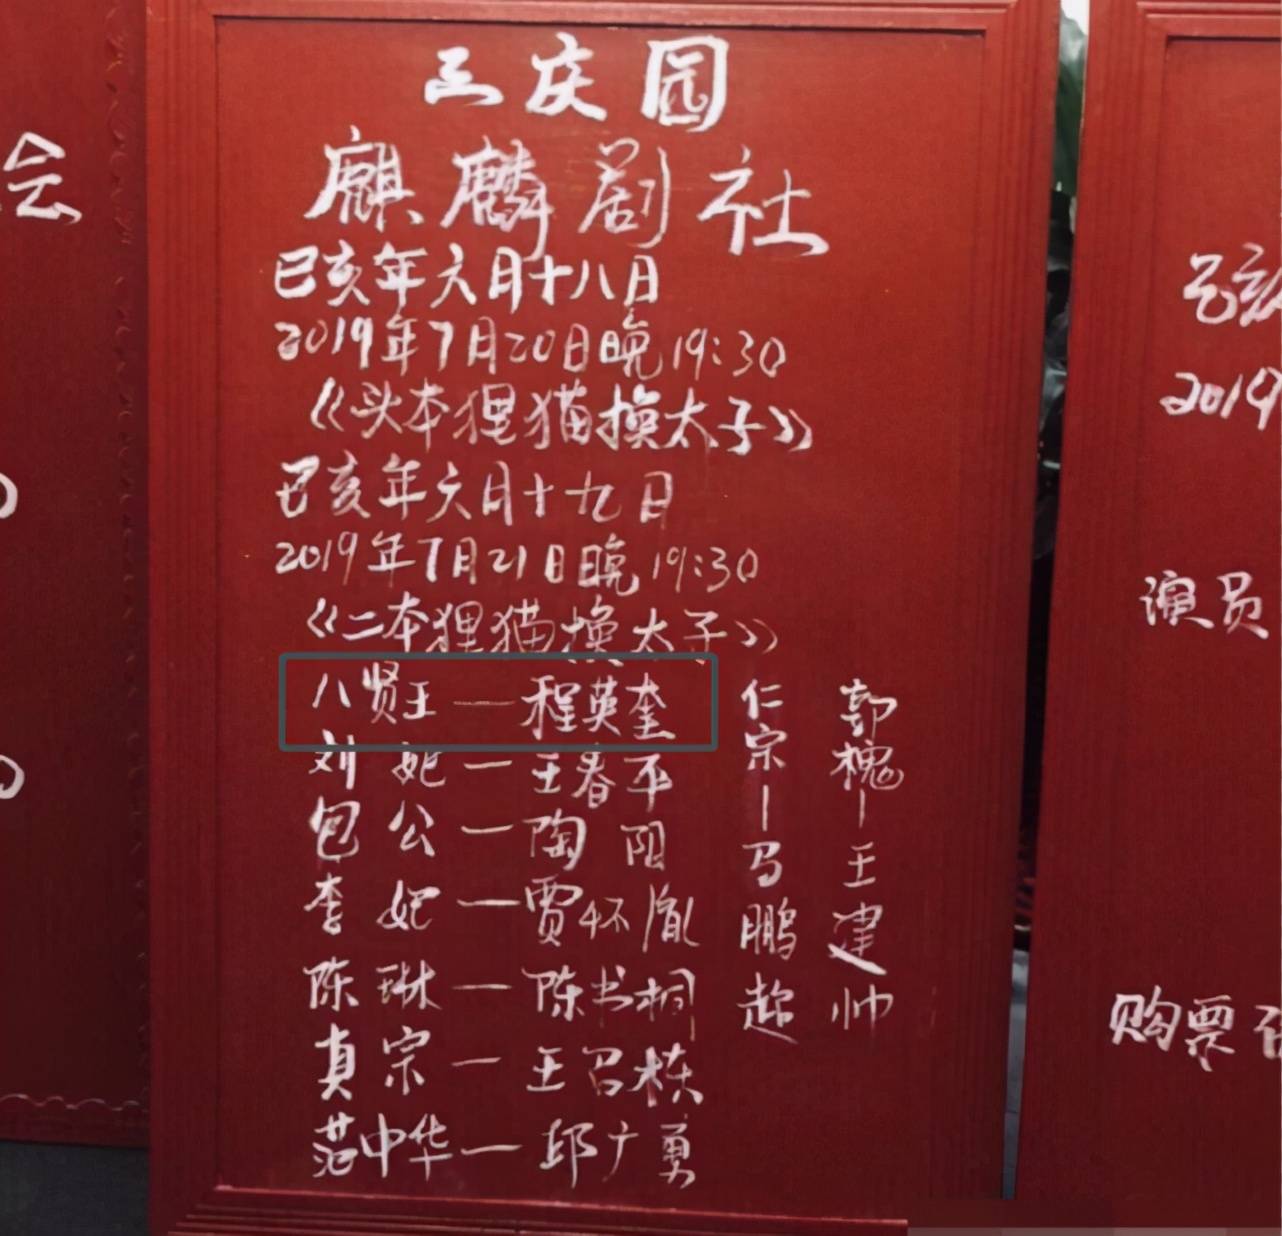 会
三庆园
麒麟剧社
己亥年六月十八日
2019年7月20日晚19:30
《头本狸猫换太子》
己亥年六月十九日
2019年7月21日晚19:30
《二本狸猫换太子》
八贤王——程英奎
刘妃—王春平
包公—陶阳
李妃—贾怀胤
陈琳—陈书桐
真宗—王召栋
范中华—邱广勇
仁宗—马鹏超
郭槐—王建帅
己亥
2019
演员
购票